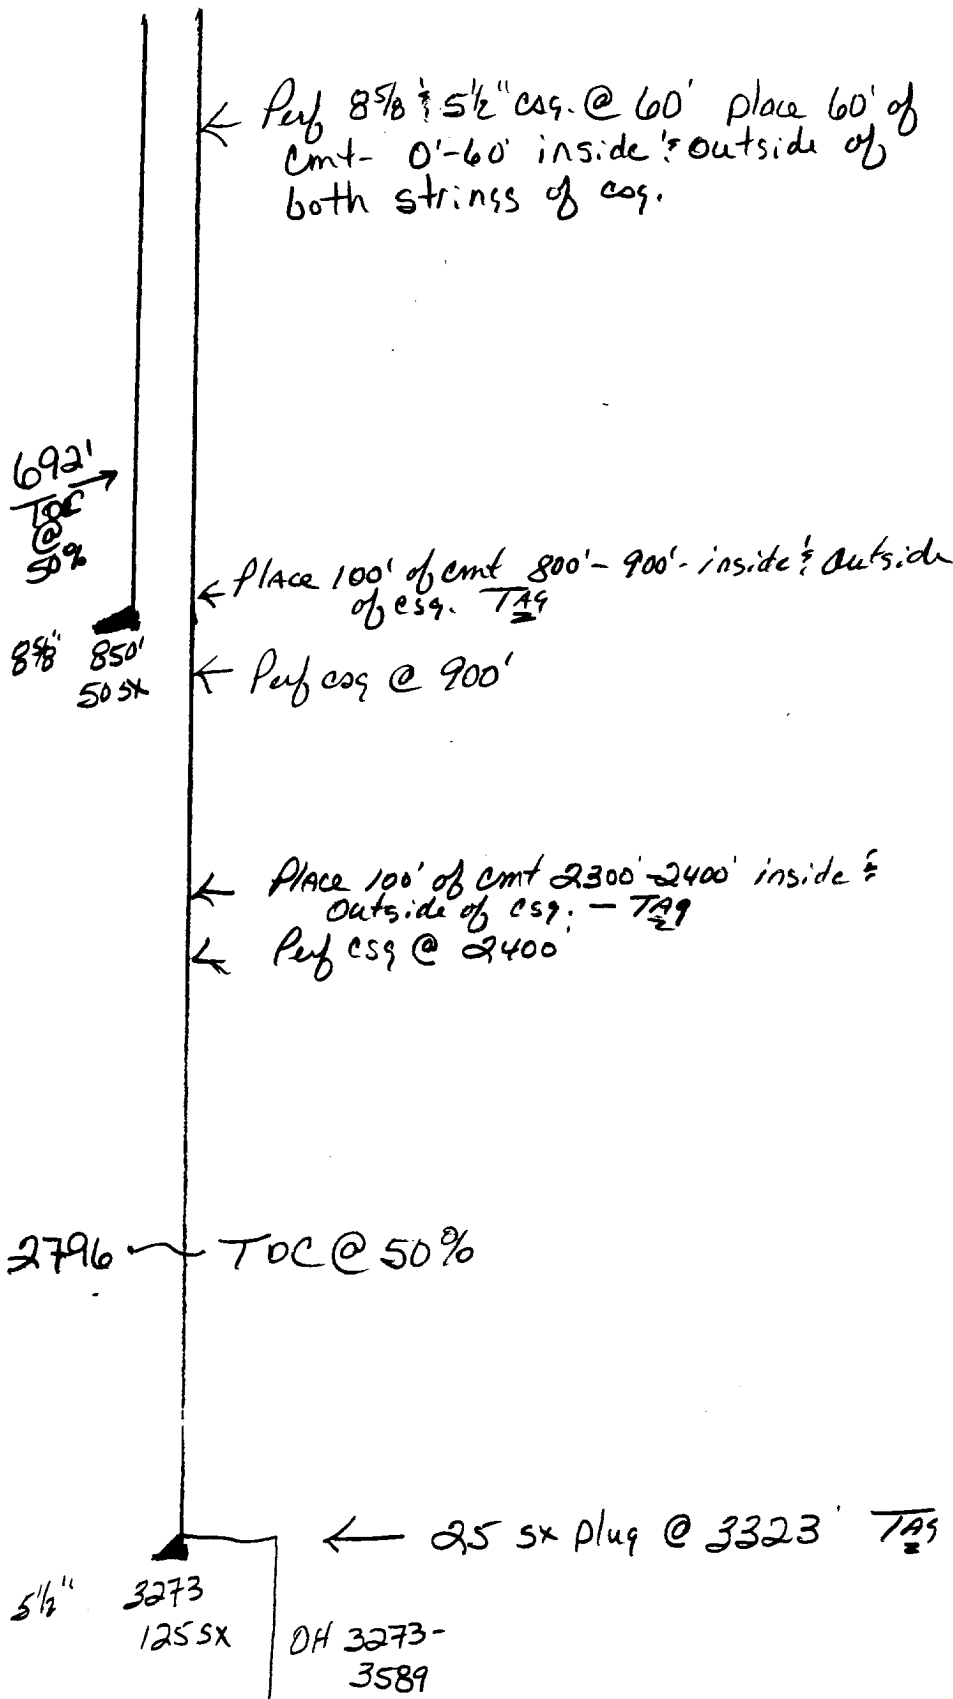 Perf 8 5/8 & 5 1/2" csg. @ 60' place 60' of
cmt- 0'-60' inside & outside of
both strings of csg.
692'
TOC
@
50%
Place 100' of cmt 800'-900'- inside & outside
of csg. TAg
8 5/8" 850'
50 sx
Perf csg @ 900'
Place 100' of cmt 2300'-2400' inside &
outside of csg. - TAg
Perf csg @ 2400'
2796 TOC @ 50%
25 sx plug @ 3323' TAg
5 1/2" 3273
125 sx
OH 3273-
3589